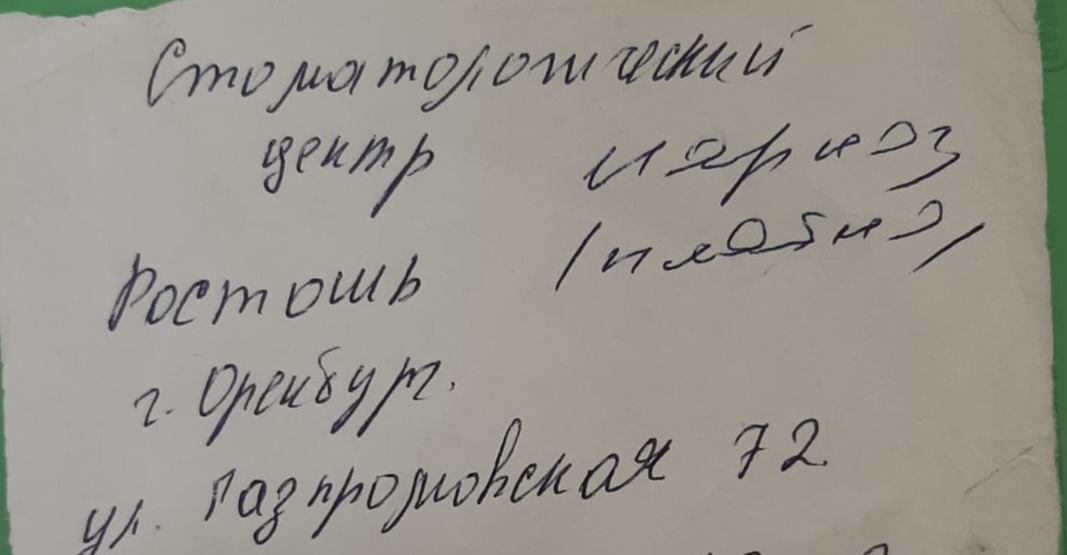 Стоматологический
центр наркоз
(платно)
Ростошь
г. Оренбург.
ул. Газпромовская 72